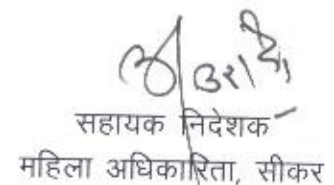 सहायक निदेशक
महिला अधिकारिता, सीकर